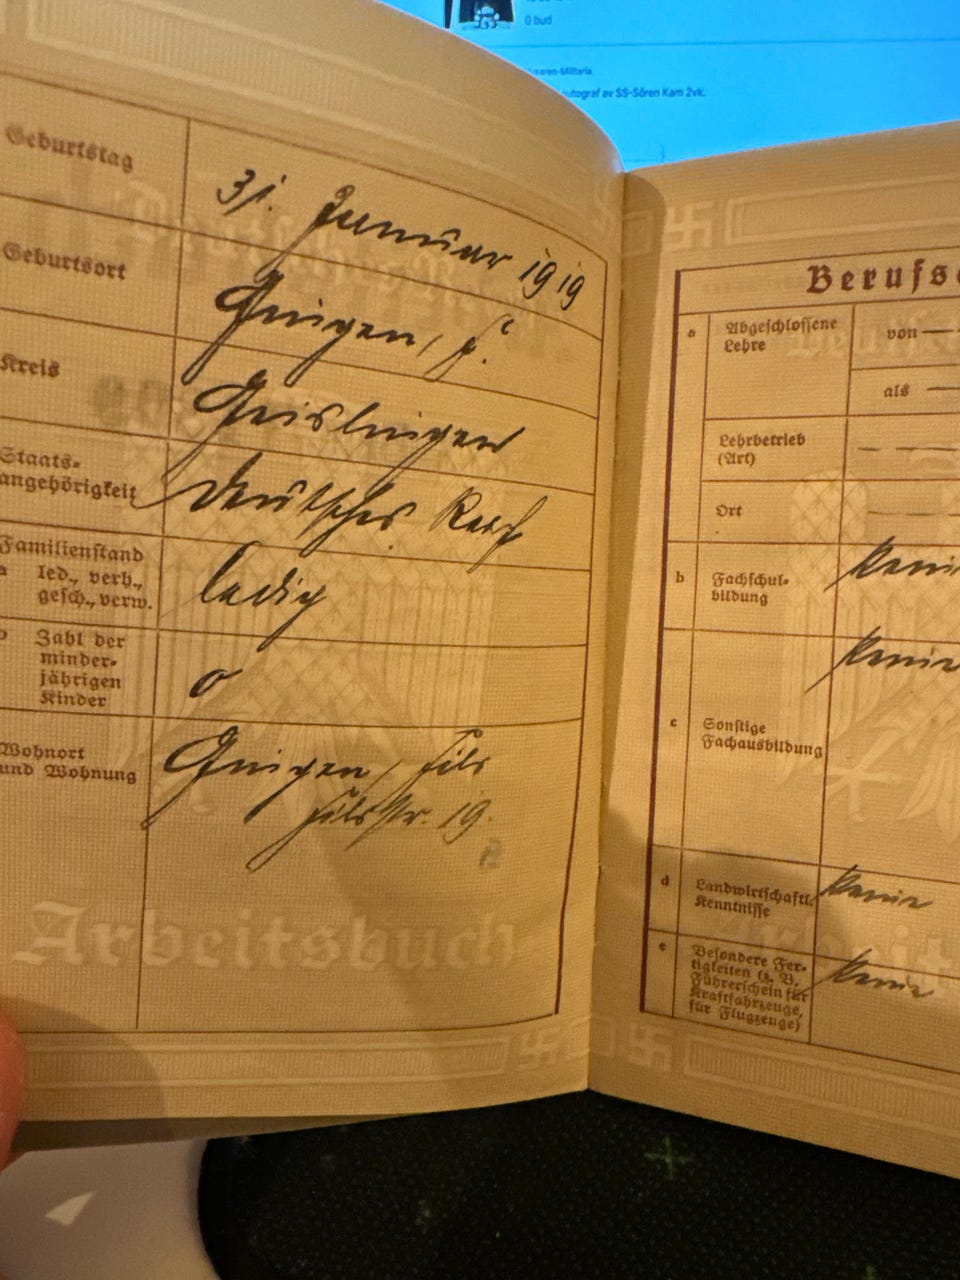 0 bud
autograf av SS-Sören Kam 2vk.
Geburtstag
31. Januar 1919
Geburtsort
Gingen,
Kreis
Geislingen
Staats-
angehörigkeit
Deutsches Reich
Familienstand
a led., verh.,
gesch., verw.
ledig
b Zahl der
minder-
jährigen
Kinder
0
Wohnort
und Wohnung
Gingen / Fils
Filsstr. 19.
Arbeitsbuch
a Abgeschlossene
Lehre
von —
als —
Lehrbetrieb
(Art)
— —
Ort
—
b Fachschul-
bildung
keine
c Sonstige
Fachausbildung
keine
d Landwirtschaftl.
Kenntnisse
keine
e Besondere Fer-
tigkeiten (z. B.
Führerschein für
Kraftfahrzeuge,
für Flugzeuge)
keine